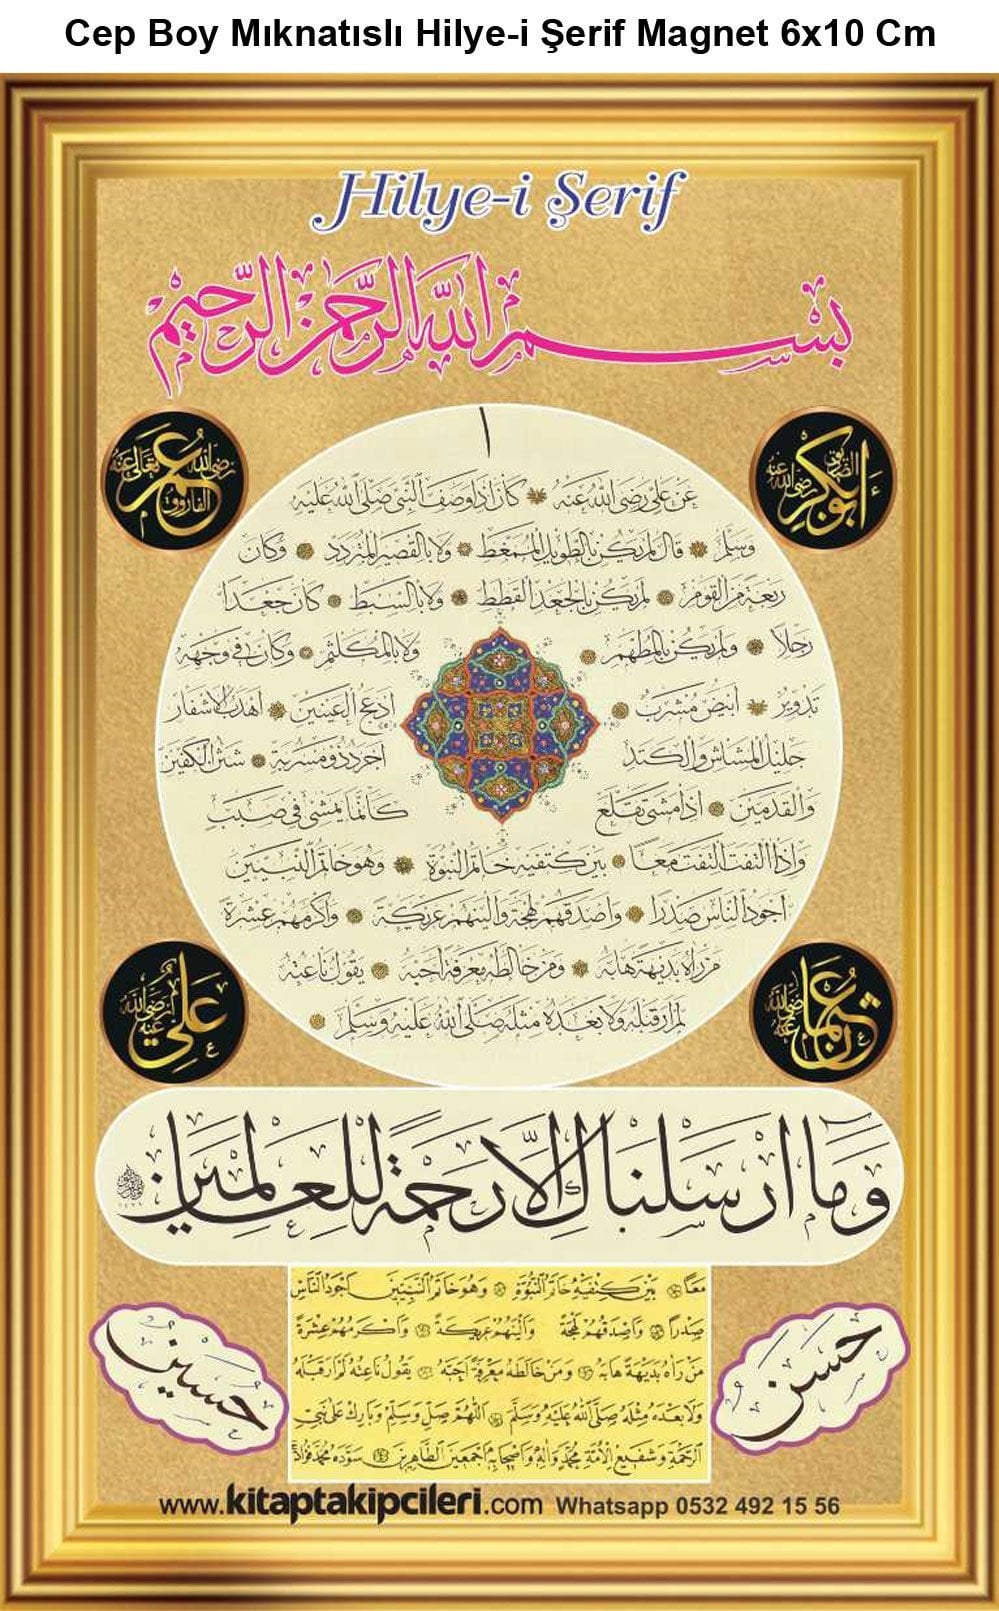 Cep Boy Mıknatıslı Hilye-i Şerif Magnet 6x10 Cm
Hilye-i Şerif
بسم الله الرحمن الرحيم
أبو بكر الصديق رضي الله عنه
عمر الفاروق رضي الله تعالى عنه
عن علي رضي الله عنه كان اذا وصف النبي صلى الله عليه
وسلم قال لم يكن بالطويل الممغط ولا بالقصير المتردد وكان
ربعة من القوم لم يكن بالجعد القطط ولا بالسبط كان جعدا
رجلا ولم يكن بالمطهم ولا بالمكلثم وكان في وجهه
تدوير ابيض مشرب ادعج العينين اهدب الاشفار
جليل المشاش والكتد اجرد ذو مسربة شثن الكفين
والقدمين اذا مشى تقلع كانما يمشي في صبب
واذا التفت التفت معا بين كتفيه خاتم النبوة وهو خاتم النبيين
اجود الناس صدرا واصدقهم لهجة والينهم عريكة واكرمهم عشرة
من رآه بديهة هابه ومن خالطه معرفة احبه يقول ناعته
لم ار قبله ولا بعده مثله صلى الله عليه وسلم
عثمان رضي الله عنه
علي رضي الله عنه
وما ارسلناك الا رحمة للعالمين
معا بين كتفيه خاتم النبوة وهو خاتم النبيين اجود الناس
صدرا واصدقهم لهجة والينهم عريكة واكرمهم عشرة
من رآه بديهة هابه ومن خالطه معرفة احبه يقول ناعته لم ار قبله
ولا بعده مثله صلى الله عليه وسلم اللهم صل وسلم وبارك على نبي
الرحمة وشفيع الامة محمد وآله واصحابه اجمعين الطاهرين سوده محمد فؤاد
حسن
حسين
www.kitaptakipcileri.com Whatsapp 0532 492 15 56